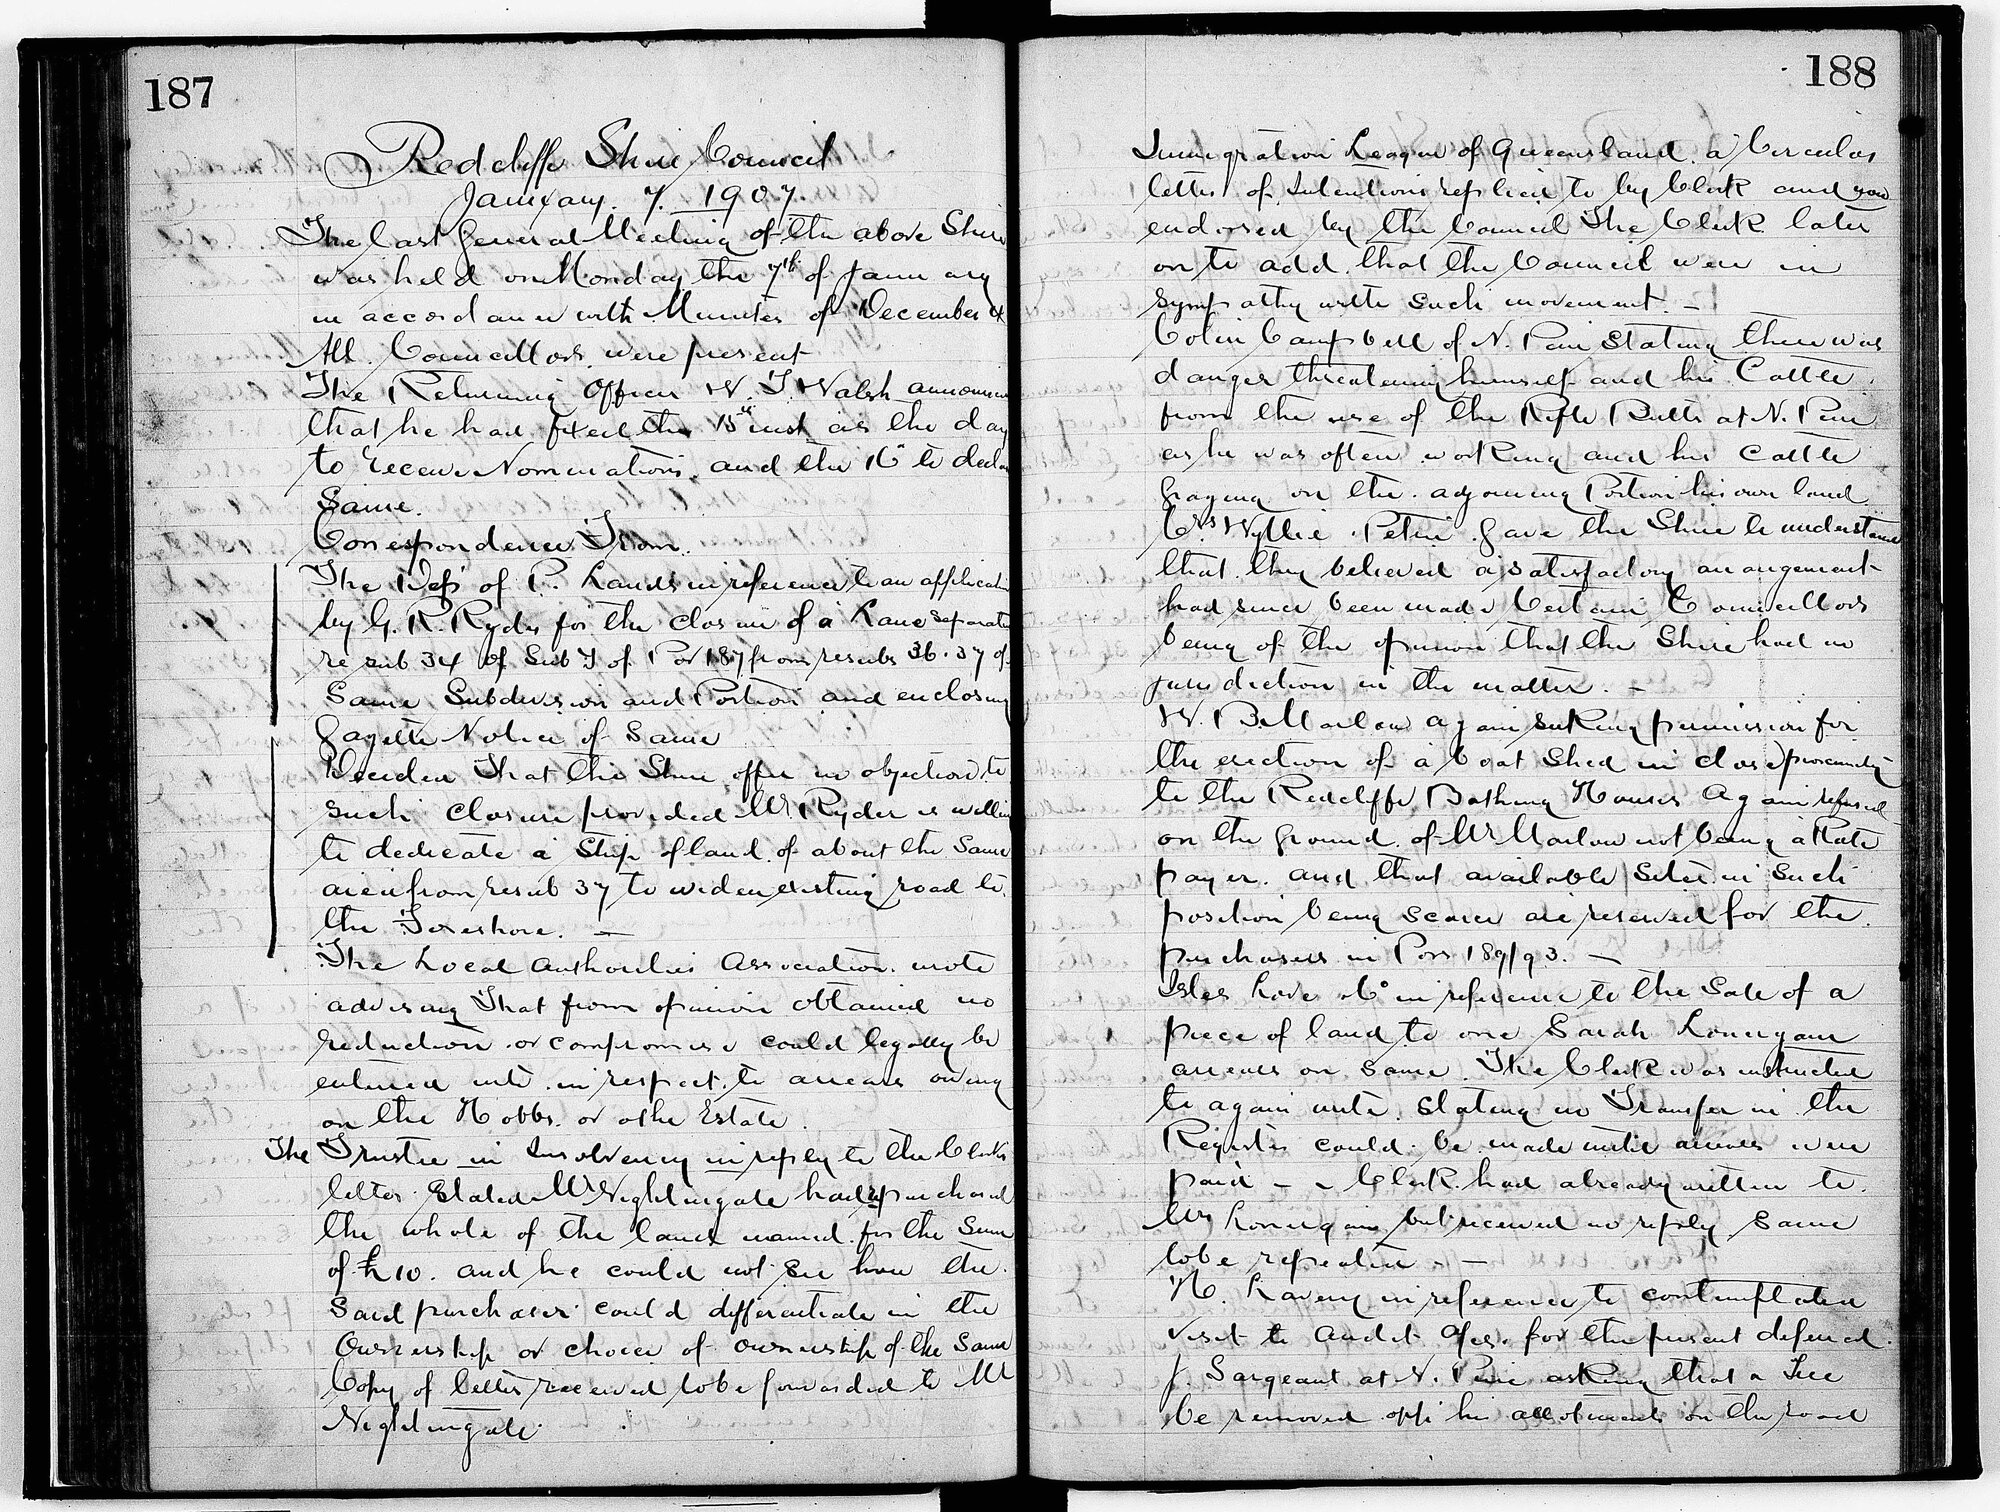 187
Redcliffe Shire Council
January. 7. 1907.
The last General Meeting of the above Shire
was held on Monday the 7th of January
in accordance with Minutes of December 4
All Councillors were present
The Returning Officer W. J. Walsh announced
that he had fixed the 15th inst as the day
to receive Nominations and the 16th to declare
Same.
Correspondence From.
The Dep of P. Lands in reference to an application
by G. R. Ryder for the closure of a Lane separating
re sub 34 of Sub 7 of Por 187 from resubs 36. 37 of
Same Subdivision and Portion and enclosing
Gazette Notice of Same
Decided That the Shire offer no objection to
such closure provided Mr Ryder is willing
to dedicate a Strip of land of about the Same
area from resub 37 to widen existing road to
the Foreshore. —
The Local Authorities Association wrote
advising That from opinion obtained no
reduction or compromise could legally be
entered into in respect to arrears owing
on the Hobbs or othe Estate.
The Trustee in Insolvency in reply to the Clerks
letter Stated Mr Nightingale had purchased
the whole of the land named for the Sum
of £10. and he could not See how the
Said purchaser could differentiate in the
Ownership or choice of ownership of the Same
Copy of letter received to be forwarded to Mr
Nightingale.
188
Immigration League of Queensland. a Circular
letter of Intentions replied to by Clerk and
endorsed by the Council The Clerk later
on to add that the Council were in
sympathy with such movement. —
Colin Campbell of N. Pine Stating there was
danger threatening himself and his Cattle
from the use of the Rifle Butts at N. Pine
as he was often working and his Cattle
grazing on the adjoining Portion his own land
Crs Wyllie Petrie gave the Shire to understand
that they believed a satisfactory arrangement
had since been made Certain Councillors
being of the opinion that the Shire had no
jurisdiction in the matter. —
W. B. Marlow again seeking permission for
the erection of a boat Shed in close proximity
to the Redcliffe Bathing Houses Again refused
on the ground of Mr Marlow not being a Rate
payer. and that available Sites in Such
position being scarce are reserved for the
purchasers in Pors 189/93. —
Isles Love & Co in reference to the Sale of a
piece of land to one Sarah Lonergan
arrears on Same. The Clerk was instructed
to again write Stating no Transfer in the
Register could be made until arrears were
paid – – Clerk had already written to
Mrs Lonergan but received no reply Same
to be repeated. —
in reference to contemplated
visit to audit for the present deferred.
J. Sargeant at N. Pine asking that a Tree
be removed opp his allotments on the road